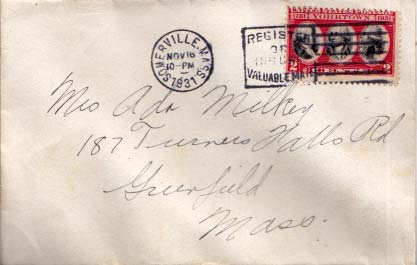 1781 YORKTOWN 1931
2 CENTS 2
SOMERVILLE, MASS.
NOV 18
10-PM
1931
REGISTER
OR
VALUABLE MAIL
Mrs Ada Milkey
187 Turners Falls Rd
Greenfield
Mass.